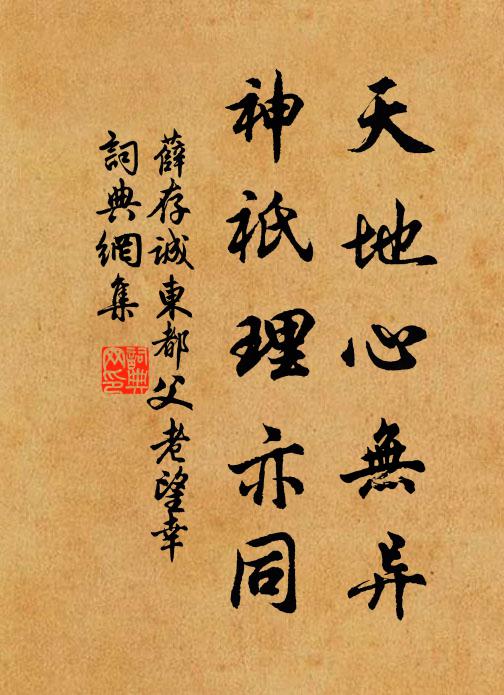 天地心無异
神祇理亦同
薛存诚東都父老望幸
詞典網集
詞典网印